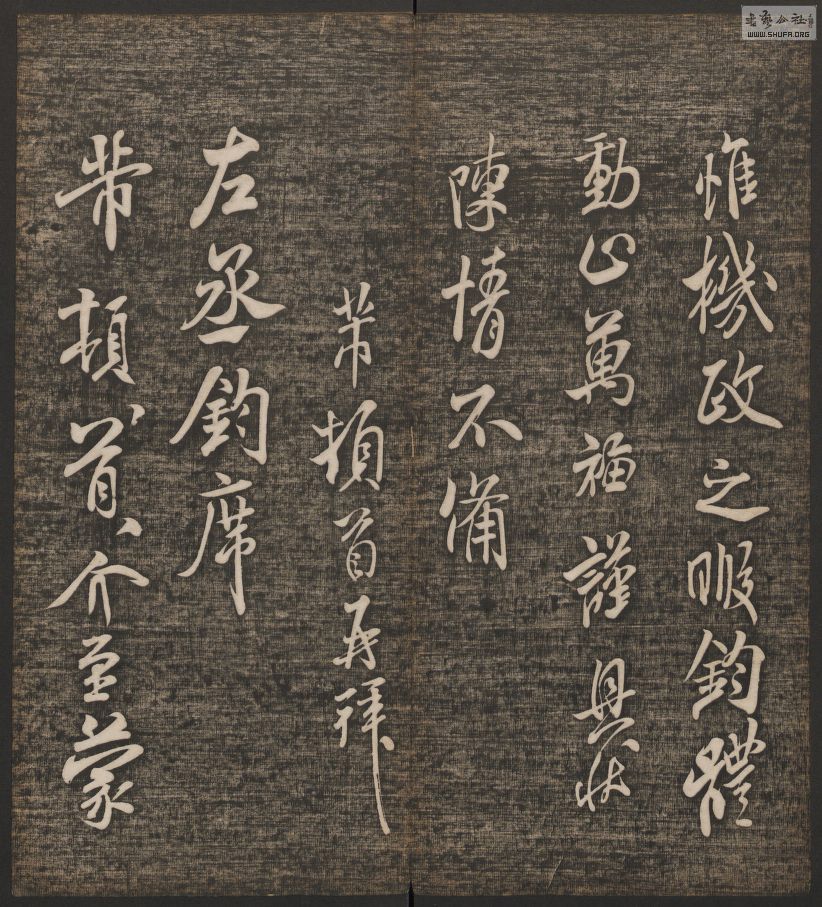 惟機政之暇鈞體
動止萬福謹具狀
陳情不備
芾頓首再拜
左丞鈞席
芾頓、首、介至蒙
書藝公社
WWW.SHUFA.ORG